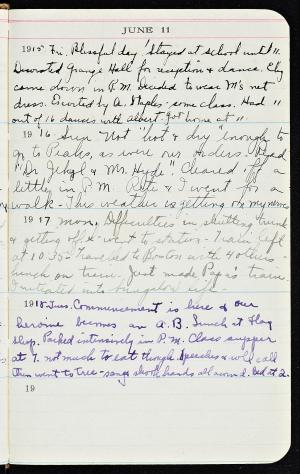 JUNE 11
1915. Fri. Blissful day. Stayed at school until 11.
Decorated Grange Hall for reception & dance. Ely
came down in P.M. Decided to wear M's net
dress. Escorted by A. Staples - some class. Had
out of 16 dances with Albert. Got home at 11
1916. Sun. Not "hot & dry" enough to
go to Peaks, as were our orders. Read
"Dr. Jekyl & Mr. Hyde" Cleared off a
little in P.M. Ruth & I went for a
walk. This weather is getting on my nerves
1917 Mon. Difficulties in shutting trunk
& getting off & went to station. Train left
at 10.35. Traveled to Boston with 4 others -
lunch on train. Just made Papa's train.
Initiated into bungalow life.
1918. Tues. Commencement is here & our
heroine becomes an A.B. Lunch at Hay
Shop. Packed intensively in P.M. Class supper
at 7. not much to eat though. Speeches & roll call
Then went to tree - songs shook hands all around. Bed at 2.
19